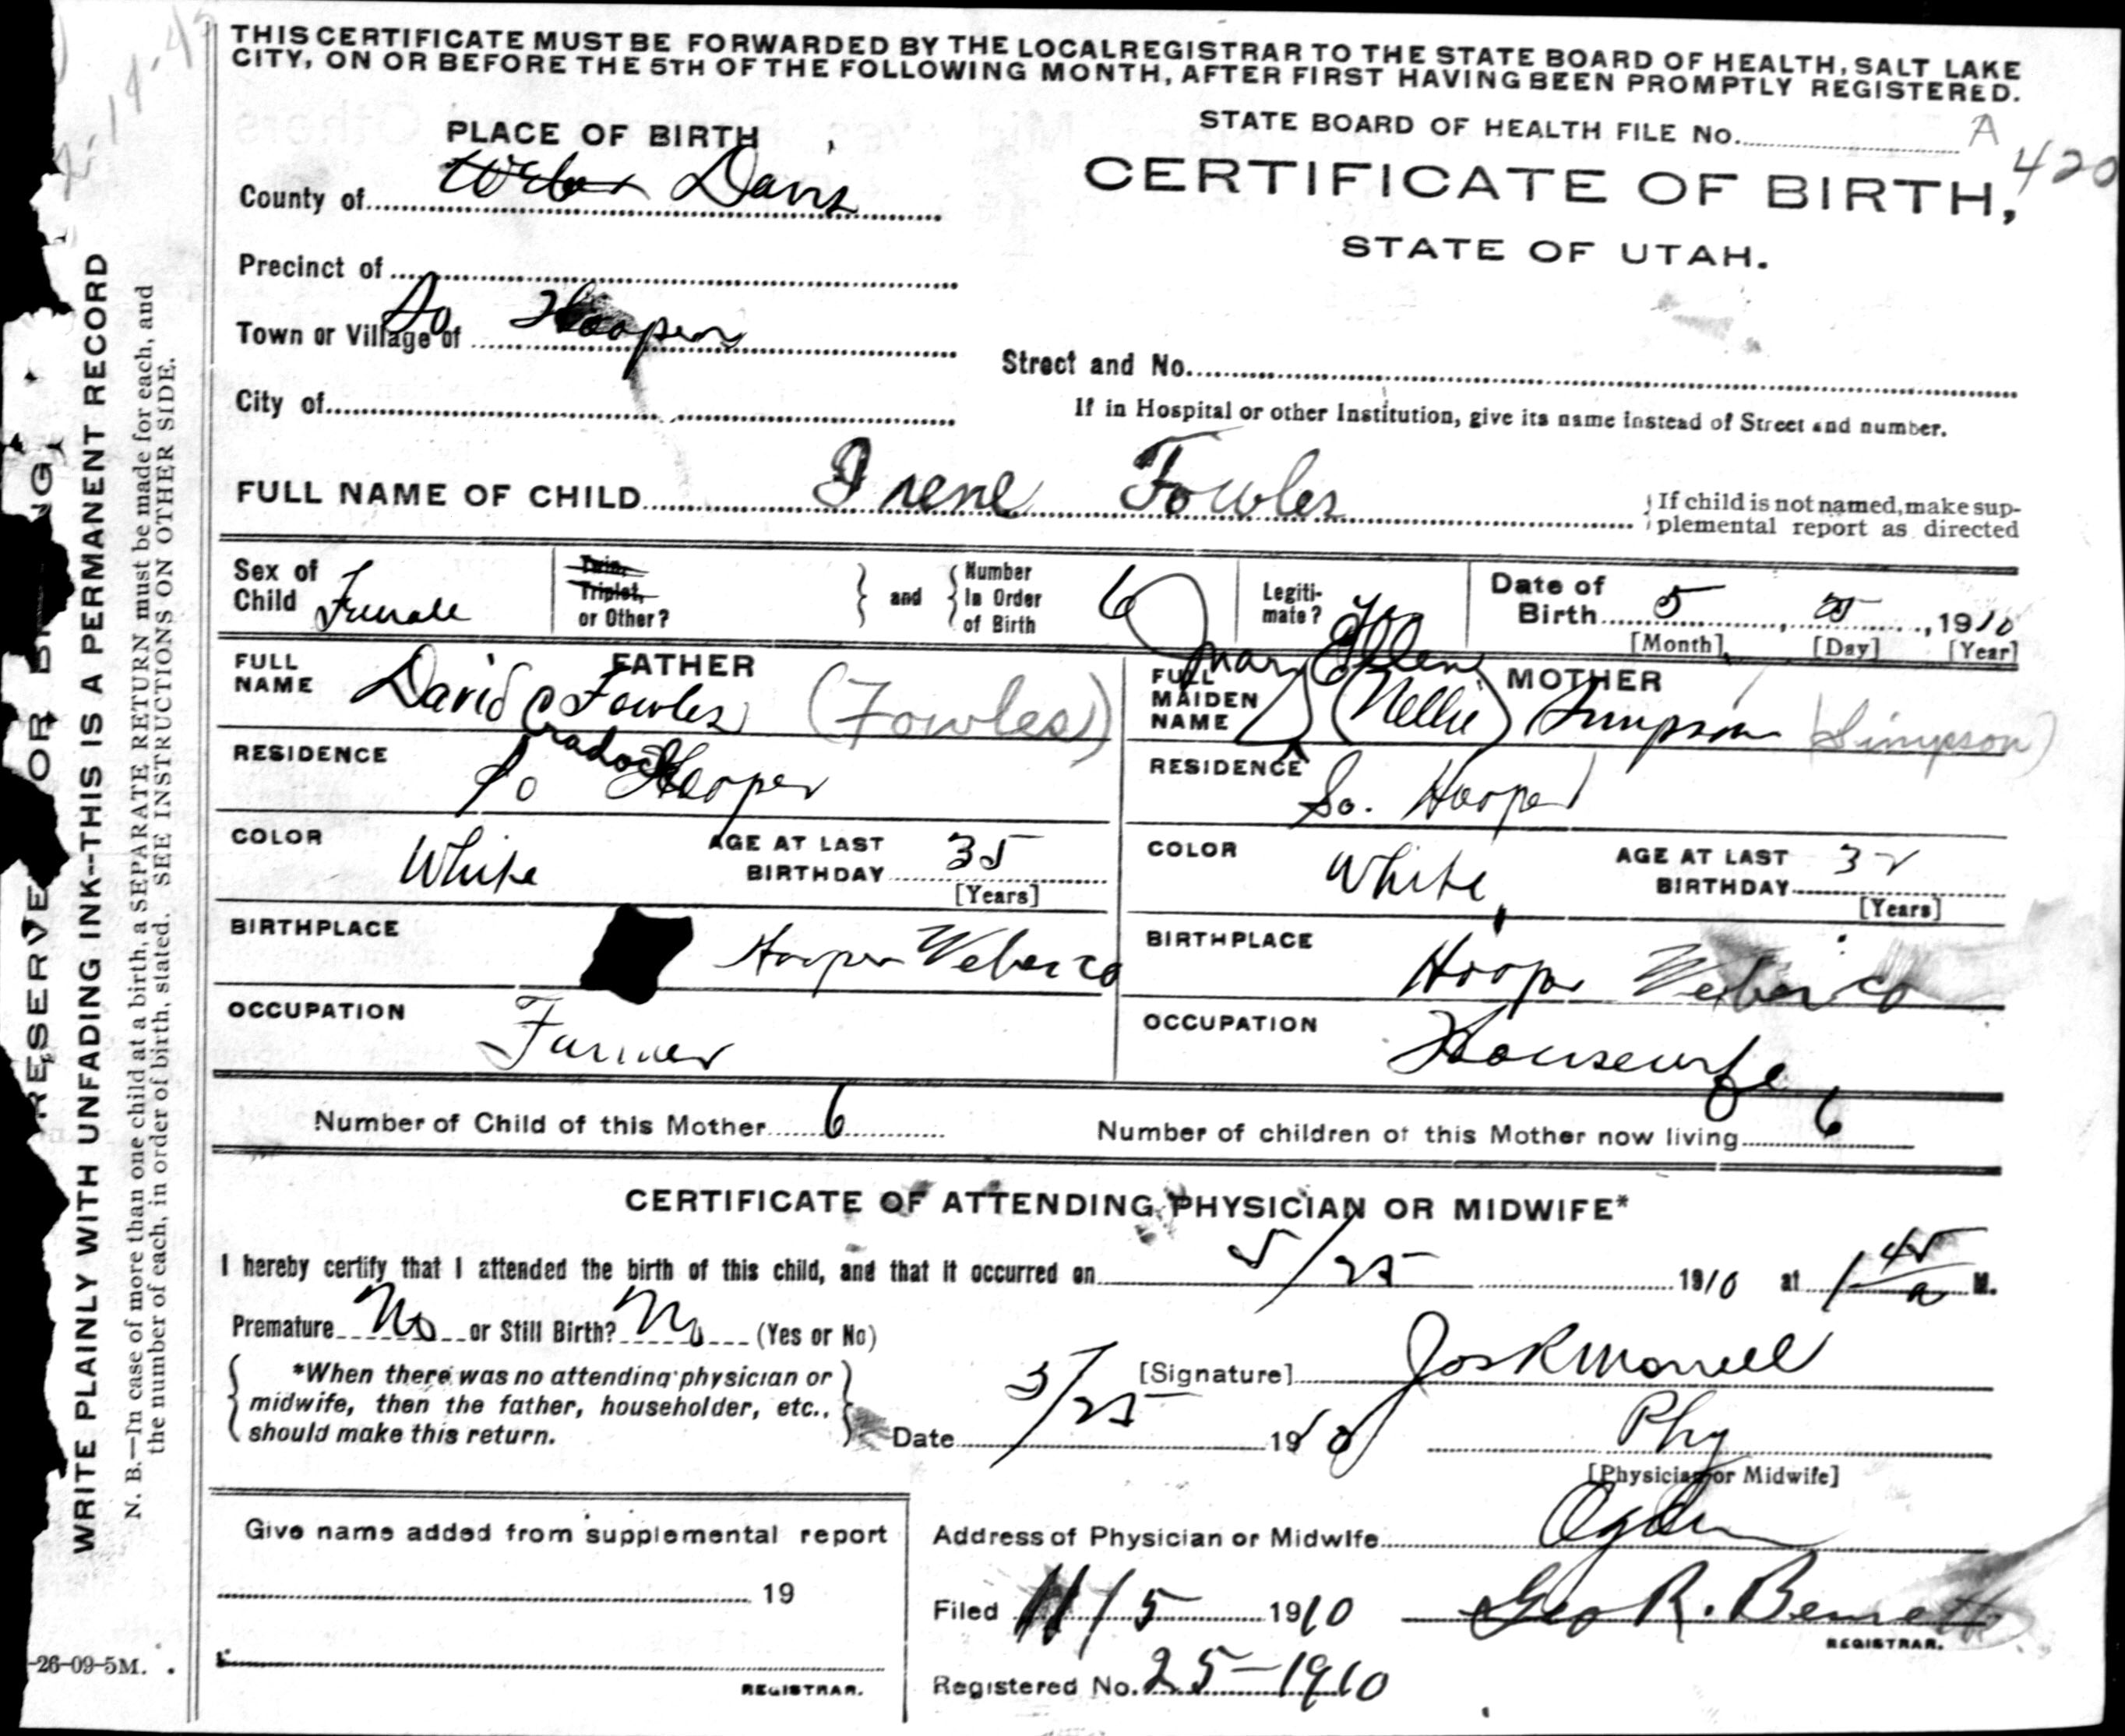 THIS CERTIFICATE MUST BE FORWARDED BY THE LOCAL REGISTRAR TO THE STATE BOARD OF HEALTH, SALT LAKE
CITY, ON OR BEFORE THE 5TH OF THE FOLLOWING MONTH, AFTER FIRST HAVING BEEN PROMPTLY REGISTERED.
STATE BOARD OF HEALTH FILE No. A 420
PLACE OF BIRTH
CERTIFICATE OF BIRTH,
STATE OF UTAH.
County of Weber Davis
Precinct of
Town or Village of So Hooper
Street and No.
City of
If in Hospital or other Institution, give its name instead of Street and number.
FULL NAME OF CHILD Irene Fowles
If child is not named, make sup-
plemental report as directed
Sex of Child Female
Twin, Triplet, or Other?
and Number In Order of Birth 6
Legiti-mate? Yes
Date of Birth 5, 25, 1910
[Month] [Day] [Year]
FATHER
FULL NAME David C Fowles (Fowles)
Cradock
MOTHER
FULL MAIDEN NAME Mary Ellen (Nellie) Simpson (Simpson)
RESIDENCE So Hooper
RESIDENCE So. Hooper
COLOR White
AGE AT LAST BIRTHDAY 35
[Years]
COLOR White
AGE AT LAST BIRTHDAY 32
[Years]
BIRTHPLACE Hooper Weber co
BIRTHPLACE Hooper Weber co
OCCUPATION Farmer
OCCUPATION Housewife
Number of Child of this Mother 6
Number of children of this Mother now living 6
CERTIFICATE OF ATTENDING PHYSICIAN OR MIDWIFE*
I hereby certify that I attended the birth of this child, and that it occurred on 5/25 1910 at 1 45 a M.
Premature No or Still Birth? No (Yes or No)
*When there was no attending physician or
midwife, then the father, householder, etc.,
should make this return.
[Signature] Jos R Morrell
Date 5/25 1910
Phy
[Physician or Midwife]
Give name added from supplemental report
19
REGISTRAR.
Address of Physician or Midwife Ogden
Filed 11/5 1910 Geo R. Bennett
REGISTRAR.
Registered No. 25-1910
-26-09-5M.
RESERVE OR B NG
WRITE PLAINLY WITH UNFADING INK--THIS IS A PERMANENT RECORD
N. B.—In case of more than one child at a birth, a SEPARATE RETURN must be made for each, and
the number of each, in order of birth, stated. SEE INSTRUCTIONS ON OTHER SIDE.